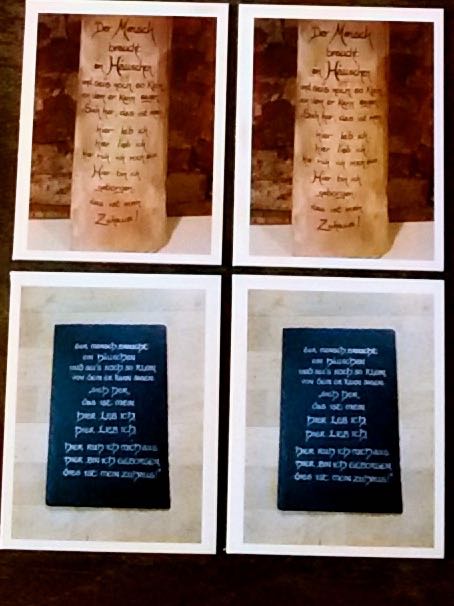 Der Mensch
braucht
ein Häuschen
und sei's noch so klein
von dem er kann sagen:
Sieh her, das ist mein
hier leb ich
hier lieb ich
hier ruh ich mich aus
Hier bin ich
geborgen,
das ist mein
Zuhaus!
Der Mensch
braucht
ein Häuschen
und sei's noch so klein
von dem er kann sagen:
Sieh her, das ist mein
hier leb ich
hier lieb ich
hier ruh ich mich aus
Hier bin ich
geborgen,
das ist mein
Zuhaus!
Der Mensch braucht
ein Häuschen
und sei's noch so klein
von dem er kann sagen
„sieh her,
das ist mein
hier leb ich
hier lieb ich
hier ruh ich mich aus
hier bin ich geborgen,
dies ist mein Zuhaus!"
Der Mensch braucht
ein Häuschen
und sei's noch so klein
von dem er kann sagen
„sieh her,
das ist mein
hier leb ich
hier lieb ich
hier ruh ich mich aus
hier bin ich geborgen,
dies ist mein Zuhaus!"